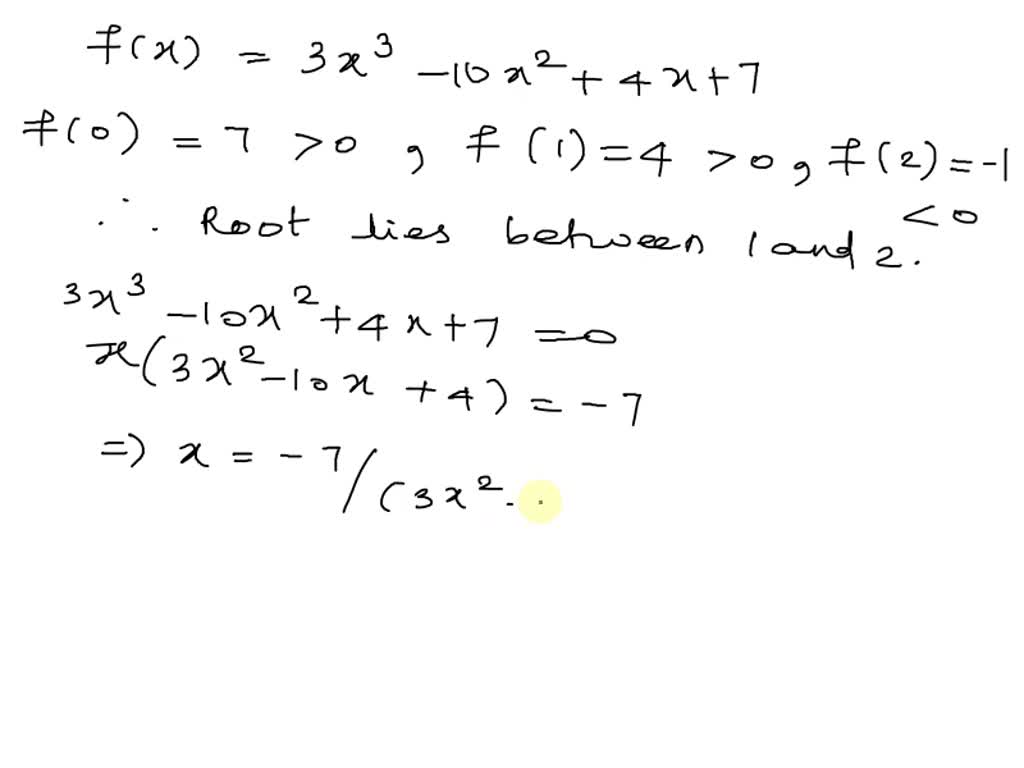 f(x) = 3x³ - 10x² + 4x + 7
f(0) = 7 > 0 , f(1) = 4 > 0 , f(2) = -1
< 0
∴ Root lies between 1 and 2.
3x³ - 10x² + 4x + 7 = 0
x(3x² - 10x + 4) = -7
=> x = -7/(3x² -